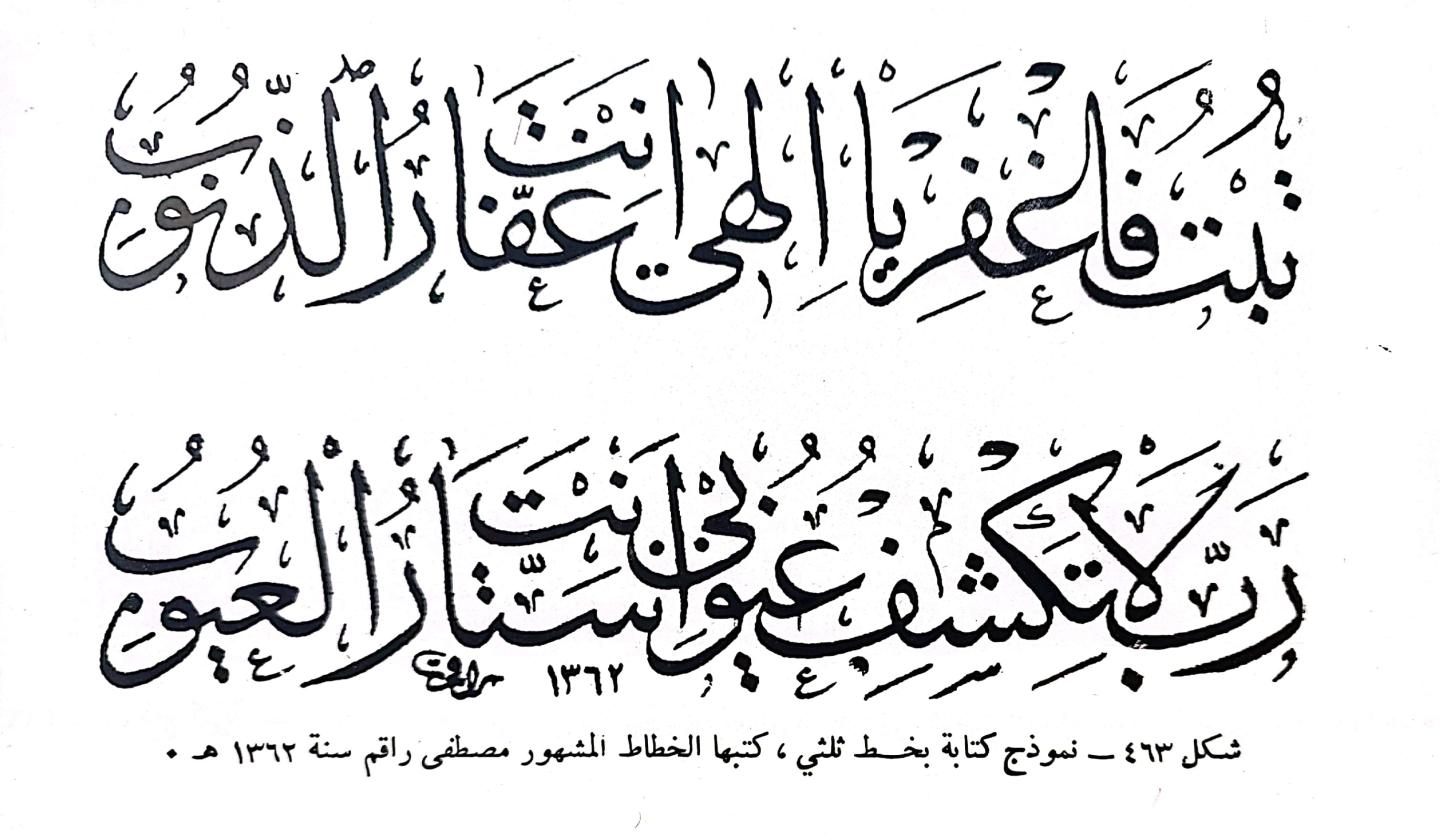 تُبْتُ فَاغْفِرْ يَا اِلٰهِي اَنْتَ غَفَّارُ الذُّنُوبِ
رَبِّ لَا تَكْشِفْ عُيُوبِي اَنْتَ سَتَّارُ الْعُيُوبِ
١٣٦٢
شكل ٤٦٣ – نموذج كتابة بخط ثلثي ، كتبها الخطاط المشهور مصطفى راقم سنة ١٣٦٢ هـ .